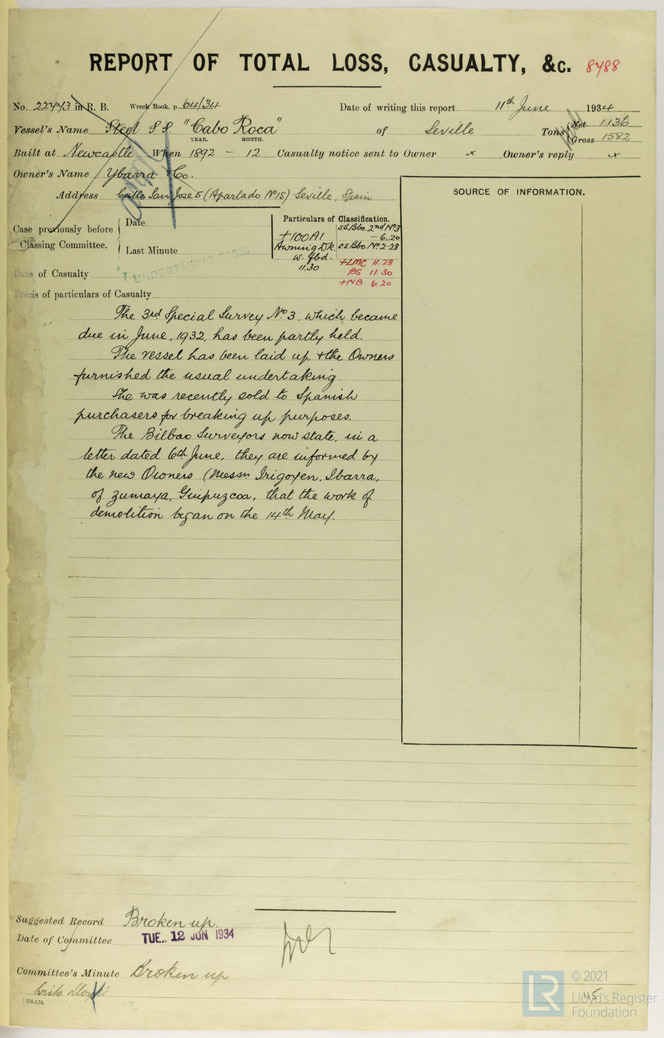 REPORT OF TOTAL LOSS, CASUALTY, &c. 8488
No. 22443 in R. B. Wreck Book, p. 64/34 Date of writing this report 11th June 1934
Vessel's Name Steel S S "Cabo Roca" of Seville Tons Net 1136
YEAR. MONTH. Gross 1582
Built at Newcastle When 1892 - 12 Casualty notice sent to Owner x Owner's reply x
Owner's Name Ybarra & Co.
Address Calle San Jose 5 (Apartado No 15) Seville, Spain
SOURCE OF INFORMATION.
Case previously before Classing Committee.
Date
Last Minute
Particulars of Classification.
+100A1
Awning Dk
w. fbd.
11.30
SS Bbo. 2nd No 3
- 6.20
SS Bbo No 2-28
+LMC 11.28
BS 11.30
+NB 6.20
Date of Casualty
UNDERTAKING CASE.
Précis of particulars of Casualty
The 3rd Special Survey No 3, which became
due in June, 1932, has been partly held.
The vessel has been laid up & the Owners
furnished the usual undertaking.
She was recently sold to Spanish
purchasers for breaking up purposes.
The Bilbao Surveyors now state, in a
letter dated 6th June, they are informed by
the new Owners (Messrs Irigoyen, Ibarra,
of Zumaya, Guipuzcoa, that the work of
demolition began on the 14th May.
Suggested Record Broken up
Date of Committee TUE. 12 JUN 1934
Committee's Minute Broken up
© 2021
LR Lloyd's Register
Foundation